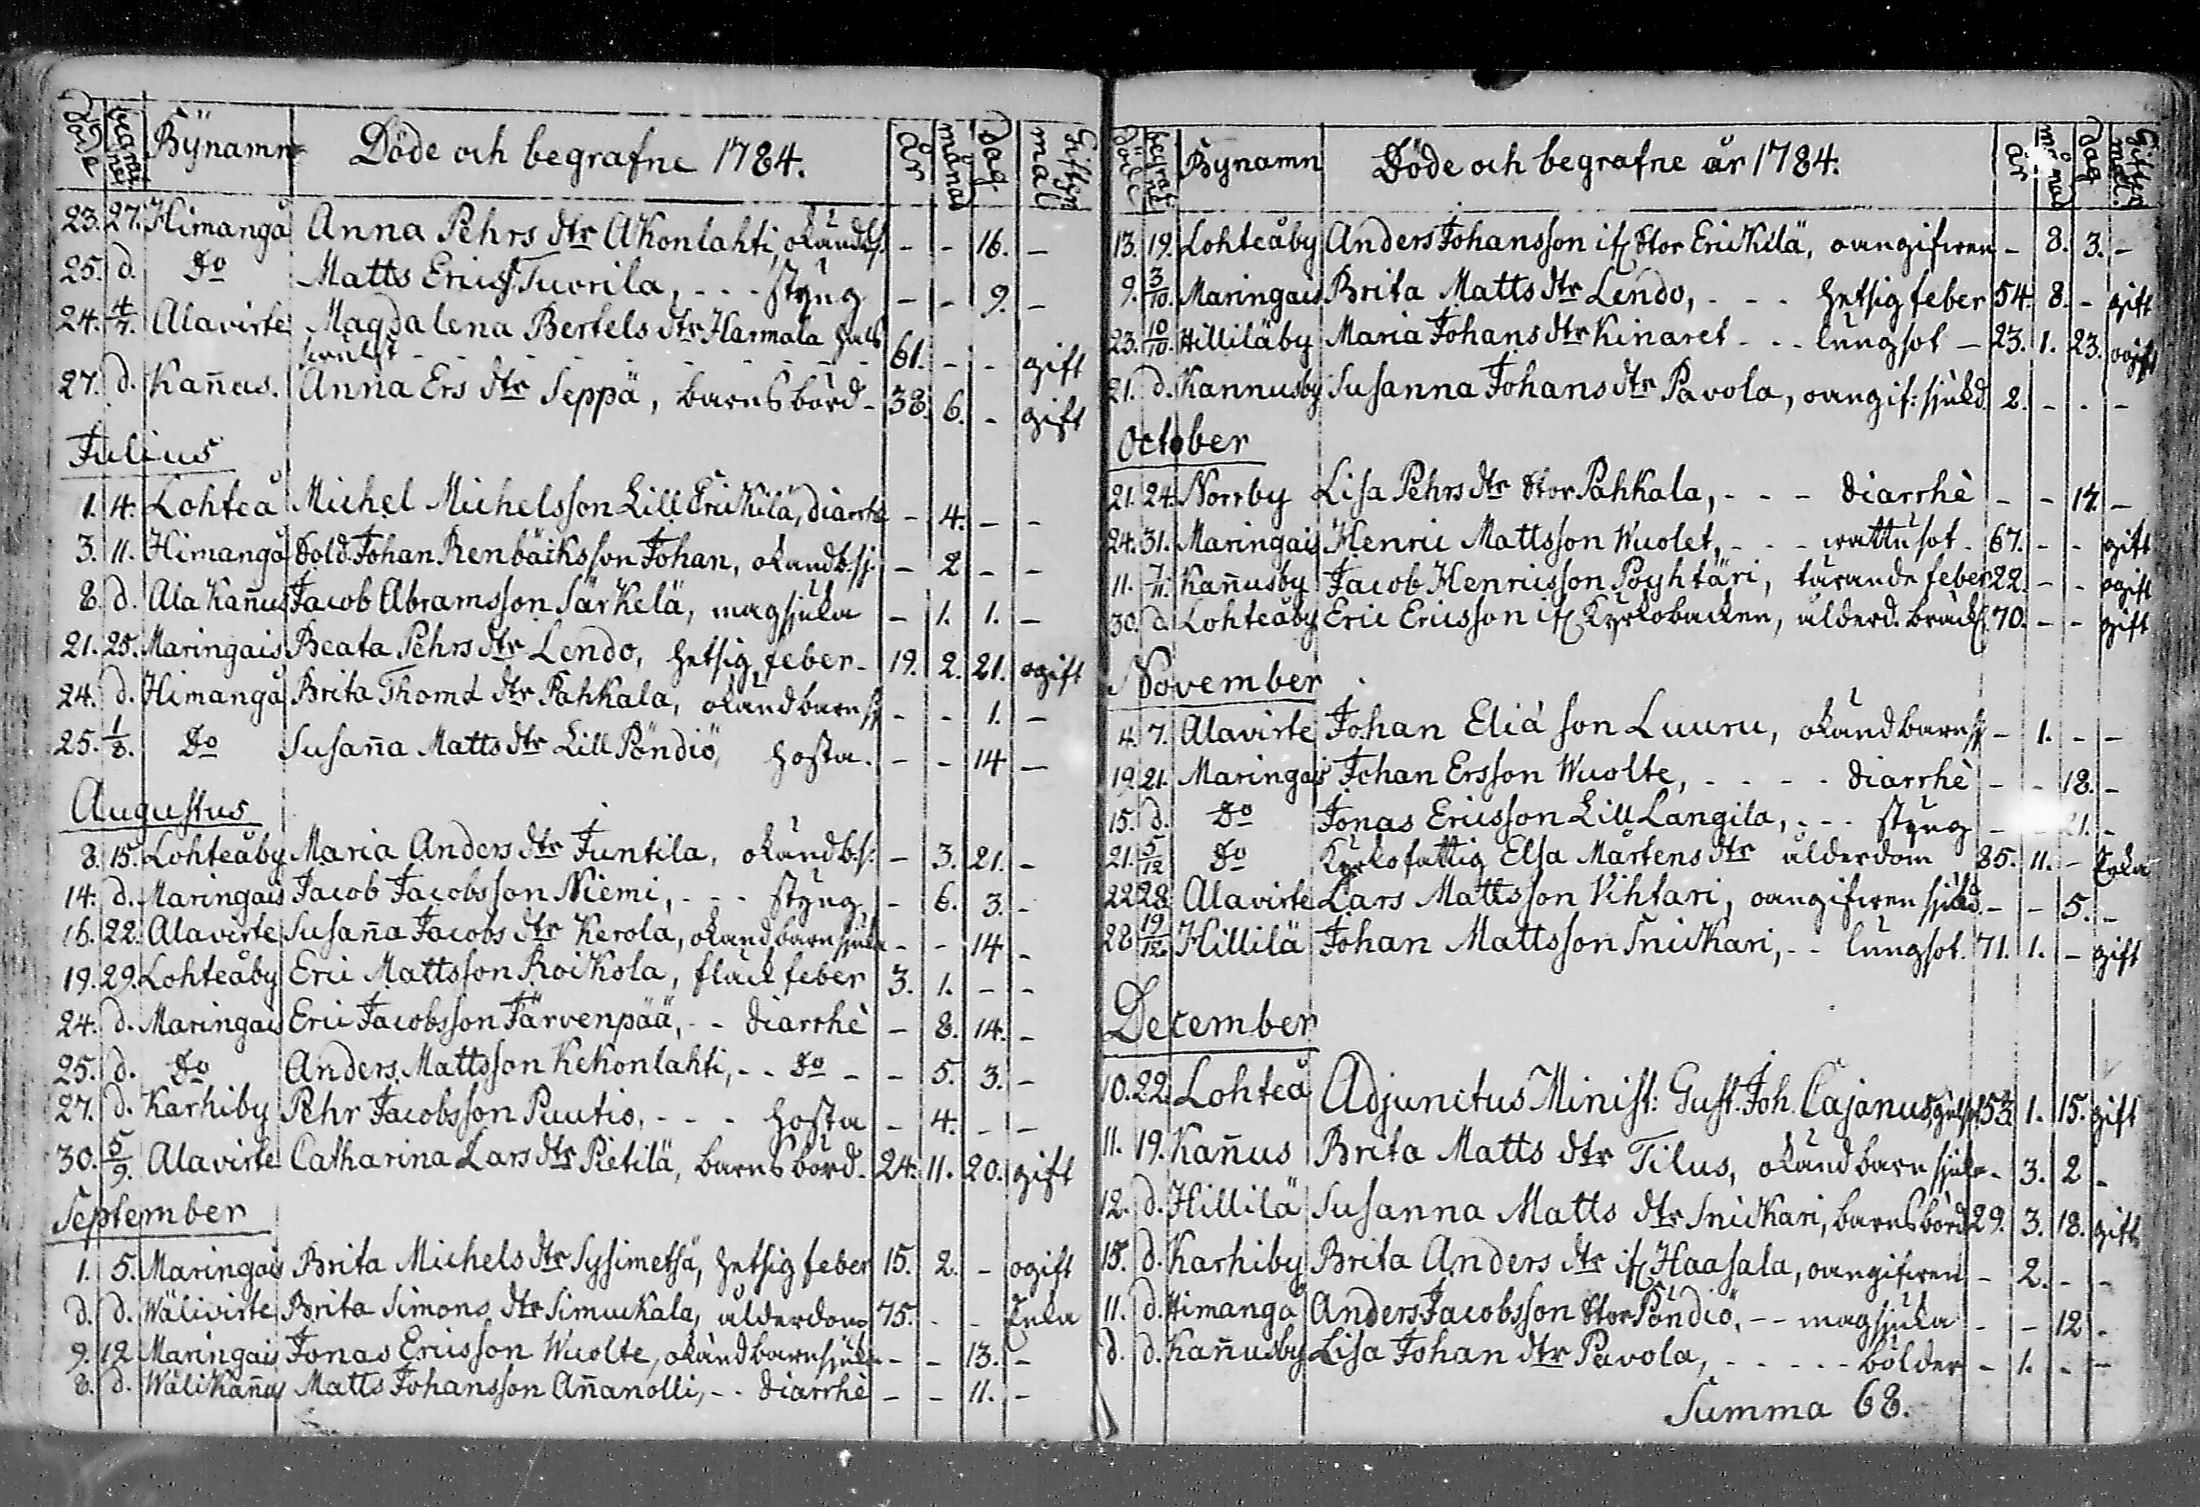 Döde begrafne Bÿnamn Döde och begrafne 1784. år månad dag Giftermål
23. 27. Himangå Anna Pehrs dtr AKonlahti, okändb:sj. - - 16. -
25. d. Do Matts Ericss. Tuorila, - - - styng - - 9. -
24. 4/7. Alavirte Magdalena Bertels dtr Harmala hals
swulst - - - - - - - - - 61. - - gift
27. d. Kañus. Anna Ers dtr Seppä, barnsbörd - 38. 6. - gift
Julius
1. 4. Lohteå Michel Michelsson Lill EricKilä, diarrhe - 4. - -
3. 11. Himangå Sold. Johan Renbäcksson Johan, okändb:sj. - 2 - -
8. d. Ala Kañus Jacob Abramsson SärKelä, magsjuka - 1. 1. -
21. 25. Maringais Beata Pehrs dtr Lendo, hetsig feber - 19. 2. 21. ogift
24. d. Himangå Brita Thomæ dtr Pahkala, okänd barnsj - - 1. -
25. 1/8. Do Susaña Matts dtr Lill Pöndiö, hosta. - - 14 -
Augustus
8. 15. Lohteåby Maria Anders dtr Juntila, okändb:s: - 3. 21. -
14. d. Maringais Jacob Jacobsson Niemi, - - - styng - 6. 3. -
16. 22. Alavirte Susaña Jacobs dtr Kerola, okänd barnsjuka - - 14 -
19. 29. Lohteåby Eric Mattsson RoiKola, fläck feber 3. 1. - -
24. d. Maringais Eric Jacobsson Järvenpää, - - diarrhè - 8. 14. -
25. d. Do Anders Mattsson KeKonlahti, - - Do - - 5. 3. -
27. d. Karhiby Pehr Jacobsson Puutio, - - - hosta - 4. - -
30. 5/9. Alavirte Catharina Lars dtr Pietilä, barnsbörd. 24. 11. 20. gift
September
1. 5. Maringais Brita Michels dtr Sysimetsä, hetsig feber 15. 2. - ogift
d. d. Wälivirte Brita Simons dtr SimuKala, ålderdom 75. - - Enka
9. 12 Maringais Jonas Ericsson Wuolte, okänd barnsjuka - - 13. -
8. d. WäliKañus Matts Johansson Añanolli, - - diarrhè - - 11. -
döde begrafne Bynamn Döde och begrafne år 1784. år månad dag Giftermål.
13. 19. Lohteåby Anders Johansson if. Stor EricKilä, oangifwen - 8. 3. -
9. 3/10. Maringais Brita Matts dtr Lendo, - - - hetsig feber 54. 8. - gift
23. 10/10. Hilliläby Maria Johans dtr Kinaret - - - lungsot - 23. 1. 23. ogift
21. d. Kannusby Susanna Johans dtr Pavola, oangif: sjukd. 2. - - -
October
21. 24. Norrby Lisa Pehrs dtr Stor Pahkala, - - - diarrhè - - 14. -
24. 31. Maringais Henric Mattsson Wuolet, - - - wattusot. 67. - - gift
11. 7/11. Kañusby Jacob Henricsson Pöyhtäri, tärande feber 22. - - ogift
30. d. Lohteåby Eric Ericsson if. Kyrkobacken, ålderd. bräckl. 70. - - gift
November
4. 7. Alavirte Johan Eliæ son Luuru, okänd barnsj - 1. - -
19. 21. Maringais Johan Ersson Wuolte, - - - - diarrhè - - 18. -
15. d. Do Jonas Ericsson Lill Langila, - - - styng - 21. -
21. 5/12 Do Kyrkofattig Elsa Mårtens dtr ålderdom 85. 11. - Enka
22 28. Alavirte Lars Mattsson Vihtari, oangifwen sjukd. - - 5. -
28 19/12 Hillilä Johan Mattsson SnicKari, - - lungsot. 71. 1. - gift
December
10. 22. Lohteå Adjunctus Minist: Gust. Joh. Cajanus, 53. 1. 15. gift
11. 19. Kañus Brita Matts dtr Tilus, okänd barnsjuka - 3. 2 -
12. d. Hillilä Susanna Matts dtr SnicKari, barnsbörd 29. 3. 18. gift
15. d. Karhiby Brita Anders dtr if. Haasala, oangifwen - 2. - -
11. d. Himangå Anders Jacobsson Stor Pöndiö, - - magsjuka - - 12 -
d. d. Kañusby Lisa Johan dtr Pavola, - - - - - bölder - 1. - -
Summa 68.